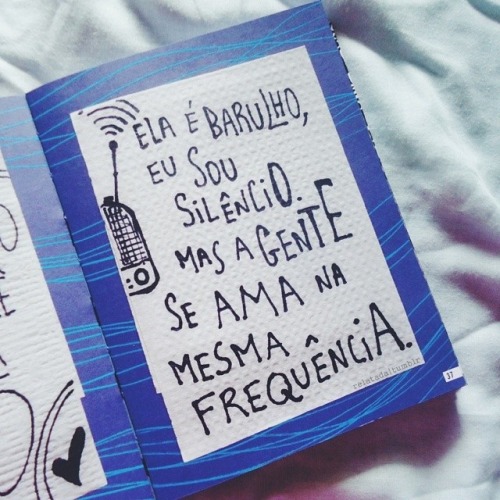 ELA É BARULHO,
EU SOU
SILÊNCIO.
MAS A GENTE
SE AMA NA
MESMA
FREQUÊNCIA.
relatada|tumblr
37